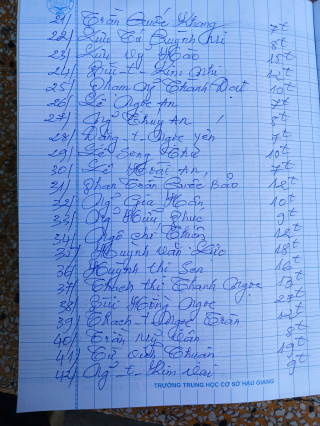 21/ Trần Quốc Khang 7t
22/ Lưu Tú Quỳnh Nhi 8t
23/ Lưu Vỹ Hào 15t
24/ Bùi-t- Kim Nhi 12t
25/ Phạm Ng Thanh Đạt 10t
26/ Lê Ngọc An 7t
27/ Ng Thúy An 8t
28/ Đặng-t-Ngọc Yến 7t
29/ Lê Song Thư 10t
30/ Lê Hoài An 7t
31/ Phan Trần Quốc Bảo 12t
32/ Ng Gia Hân 10t
33/ Ng Hữu Phúc 9t
34/ Ngô Chí Thiện 12t
35/ Huỳnh Văn Lúc 18t
36/ Huỳnh Thị Sen 16t
37/ Thạch Thị Thanh Ngọc 13t
38/ Bùi Hồng Ngọc 27t
39/ Thạch-t-Ngọc Trân 12t
40/ Trần Như Vân 8t
41/ Từ Vinh Thuận 19t
42/ Ng-t-Kim 9t
TRƯỜNG TRUNG HỌC CƠ SỞ HẬU GIANG